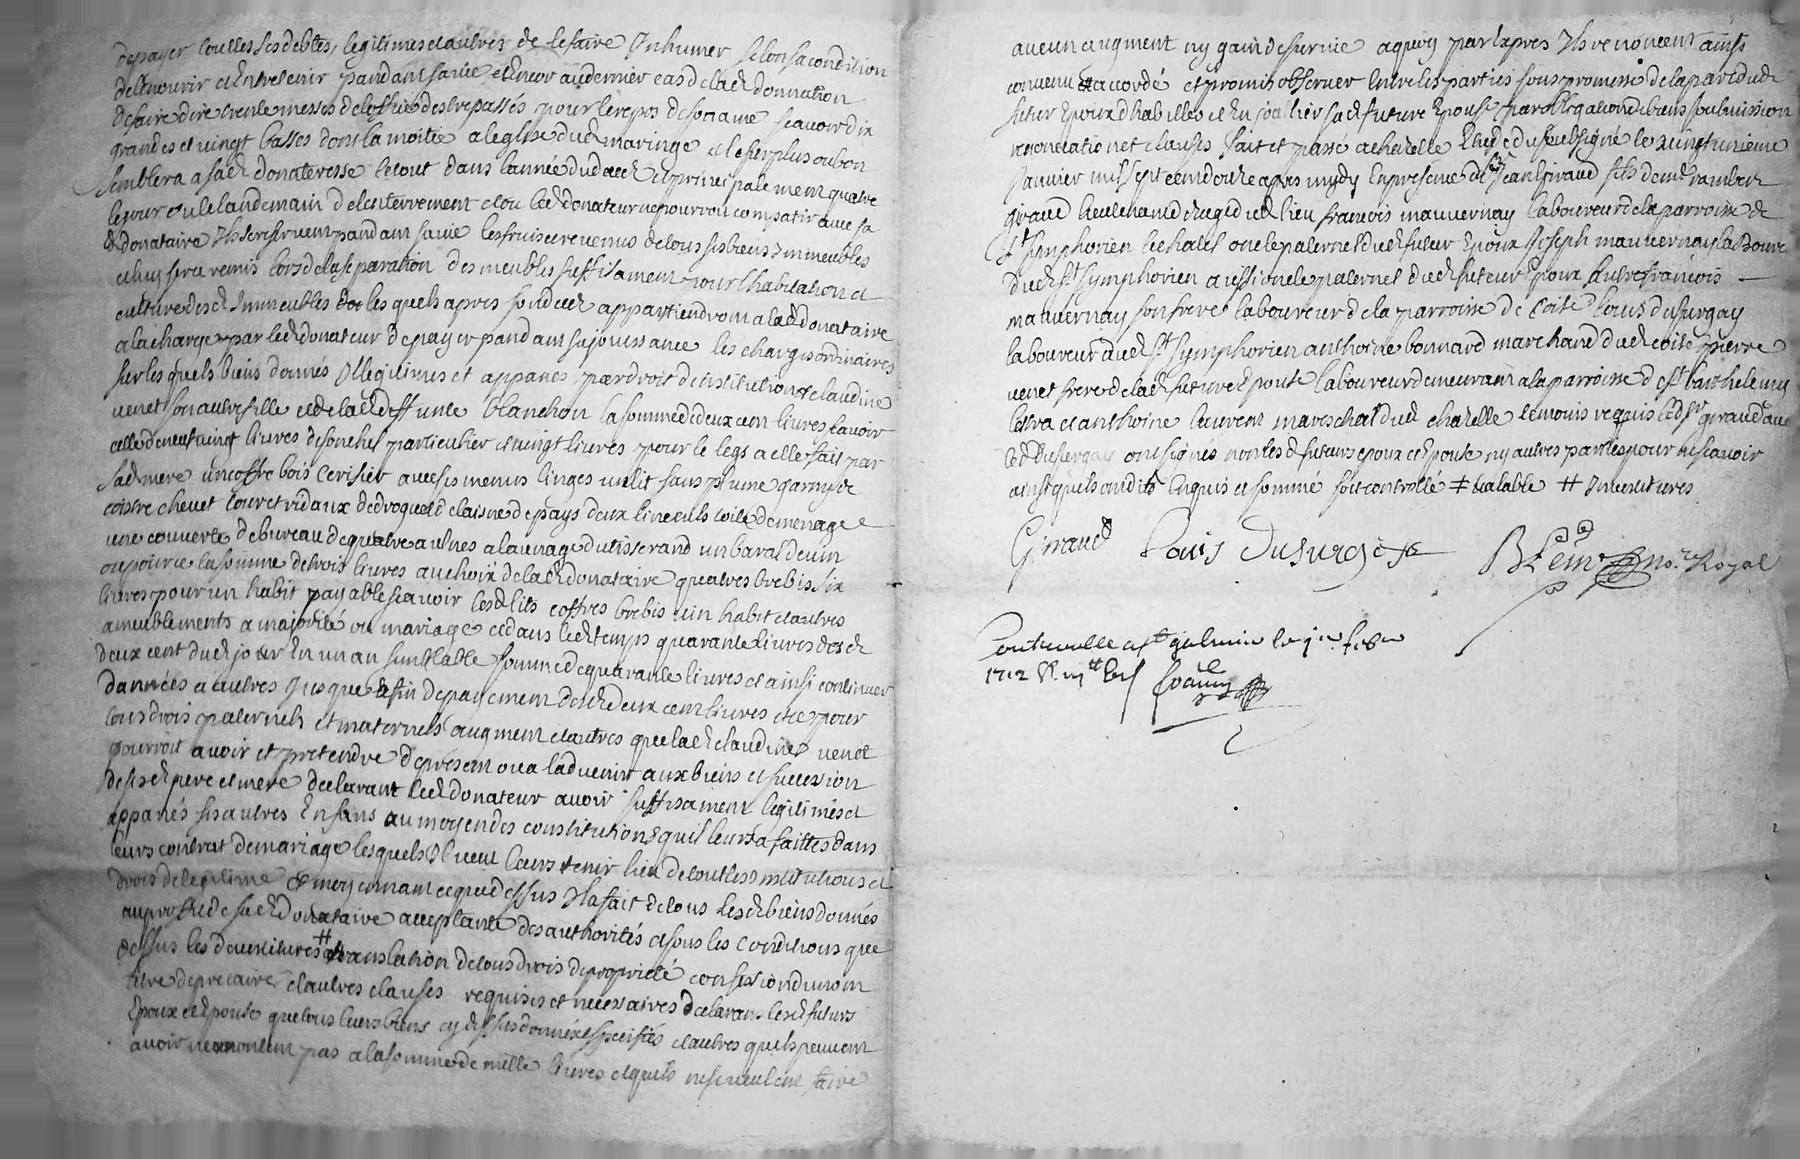 de payer touttes ses debtes legitimes et autres de le faire Inhumer selon sa condition
de le nourir et Entretenir pandant sa vie et Encor au dernier cas de lad donnation
de faire dire trente messes de loffice des trepassés pour le repos de son ame scavoir dix
grandes et vingt basses dont la moitié a leglise dud maringe et le surplus ou bon
semblera a sad donateresse le tout dans lannée dud decd et principalement quatre
le jour et le landemain de lenterrement et ou led donateur ne pourroit compatir avec sa
d donataire Ils reservent pandant sa vie les fruis et revenus de tous ses biens Immeubles
et luy sera remis lors de la separation des meubles suffisament pour lhabitation et
culture desd Immeubles lesquels apres son deced appartiendront a lad donataire
a la charge par led donateur de payer pandant sa jouissance les charges ordinaires
sur lesquels biens donnés Il legitimes et appanes par droit dinstitution claudine
venet son autre fille et de lad deffunte blanchon la somme de deux cent livres scavoir
celle de neuf vingt livres de son chef particulier et vingt livres pour le legs a elle fait par
sad mere un coffre bois cerisier avec ses menus linges un lit sans plume garny de
coistre chevet tour et ridaux de droguet de laisne de pays deux linceuls toile de menage
une couverte de bureau de quatre aulnes a launage du tisserand un baral de vin
ou pour ce la somme de trois livres au choix de lad donataire quatres brebis six
livres pour un habit payable scavoir lesd lits coffres brebis vin habit et autres
ameublements a majorité ou mariage et dans led temps quarante livres desd
deux cent dud jour En un an semblable somme de quarante livres et ainsi continuer
dannées a autres Jusque a fin de payement desd deux cent livres et ce pour
tous drois paternels et maternels augment et autres que lad claudine venet
pourroit avoir et pretendre de present ou a ladvenir aux biens et succession
de sesd pere et mere declarant led donateur avoir suffisament legitimés et
appanés ses autres Enfans au moyen des constitutions quil leurs a faittes dans
leurs contrat de mariage lesquels Il veut leurs tenir lieu de touttes Institutions et
drois de legitime et moyennant ce que dessus Il a fait de tous lesd biens donnés
au proffit de sad donataire acceptante des authorités et sous les conditions que
dessus les devestitures # translation de tous drois de proprieté confession du nom
titre de precaire et autres clauses requises et necessaires declarans lesd futurs
Epoux et Epouse que tous leurs biens cy dessus donnés et speciffiés et autres quils peuvent
avoir ne montent pas a la somme de mille livres et quils ne se veulent faire
aucun augment ny gain de survie a quoy par Exprés Ils renoncent ainsi
convenu et accordé et promis observer Entre les parties sous promesse de la part dud
futur Epoux dhabiller et En joaillier sad future Epouse par obligation de biens soubmission
renonciation et clauses fait et passé a chazelle Etude du soubsigné le vingt unieme
janvier mil sept cent douze apres midy En presence de sr Jean giraud fils de mr rambert
giraud lieutenant de juge dud lieu francois mauvernay laboureur de la parroisse de
st symphorien le chatel oncle paternel dud futur Epoux Joseph mauvernay laboure
dud st symphorien aussi oncle paternel dud futeur Epoux autre francois
mauvernay son frere laboureur de la parroisse de Coise louis dusurgay
laboureur dud st symphorien anthoine bonnard marchand dud coise pierre
venet frere de lad future Epouse laboureur demeurant a la parroisse de st barthelemy
lestra et anthoine laurent mareschal dud chazelle temoins requis led sr giraud avec
led dusurgay ont signés non les d futeurs epoux et Epouse ny autres parties pour ne scavoir
ainsy quils ont dits Enquis et sommé soit controllé ‡ vealable # Investitures
Giraud Louis dusurgey Blein no.re Royal
Controllé a st galmier le 1er febver
1712